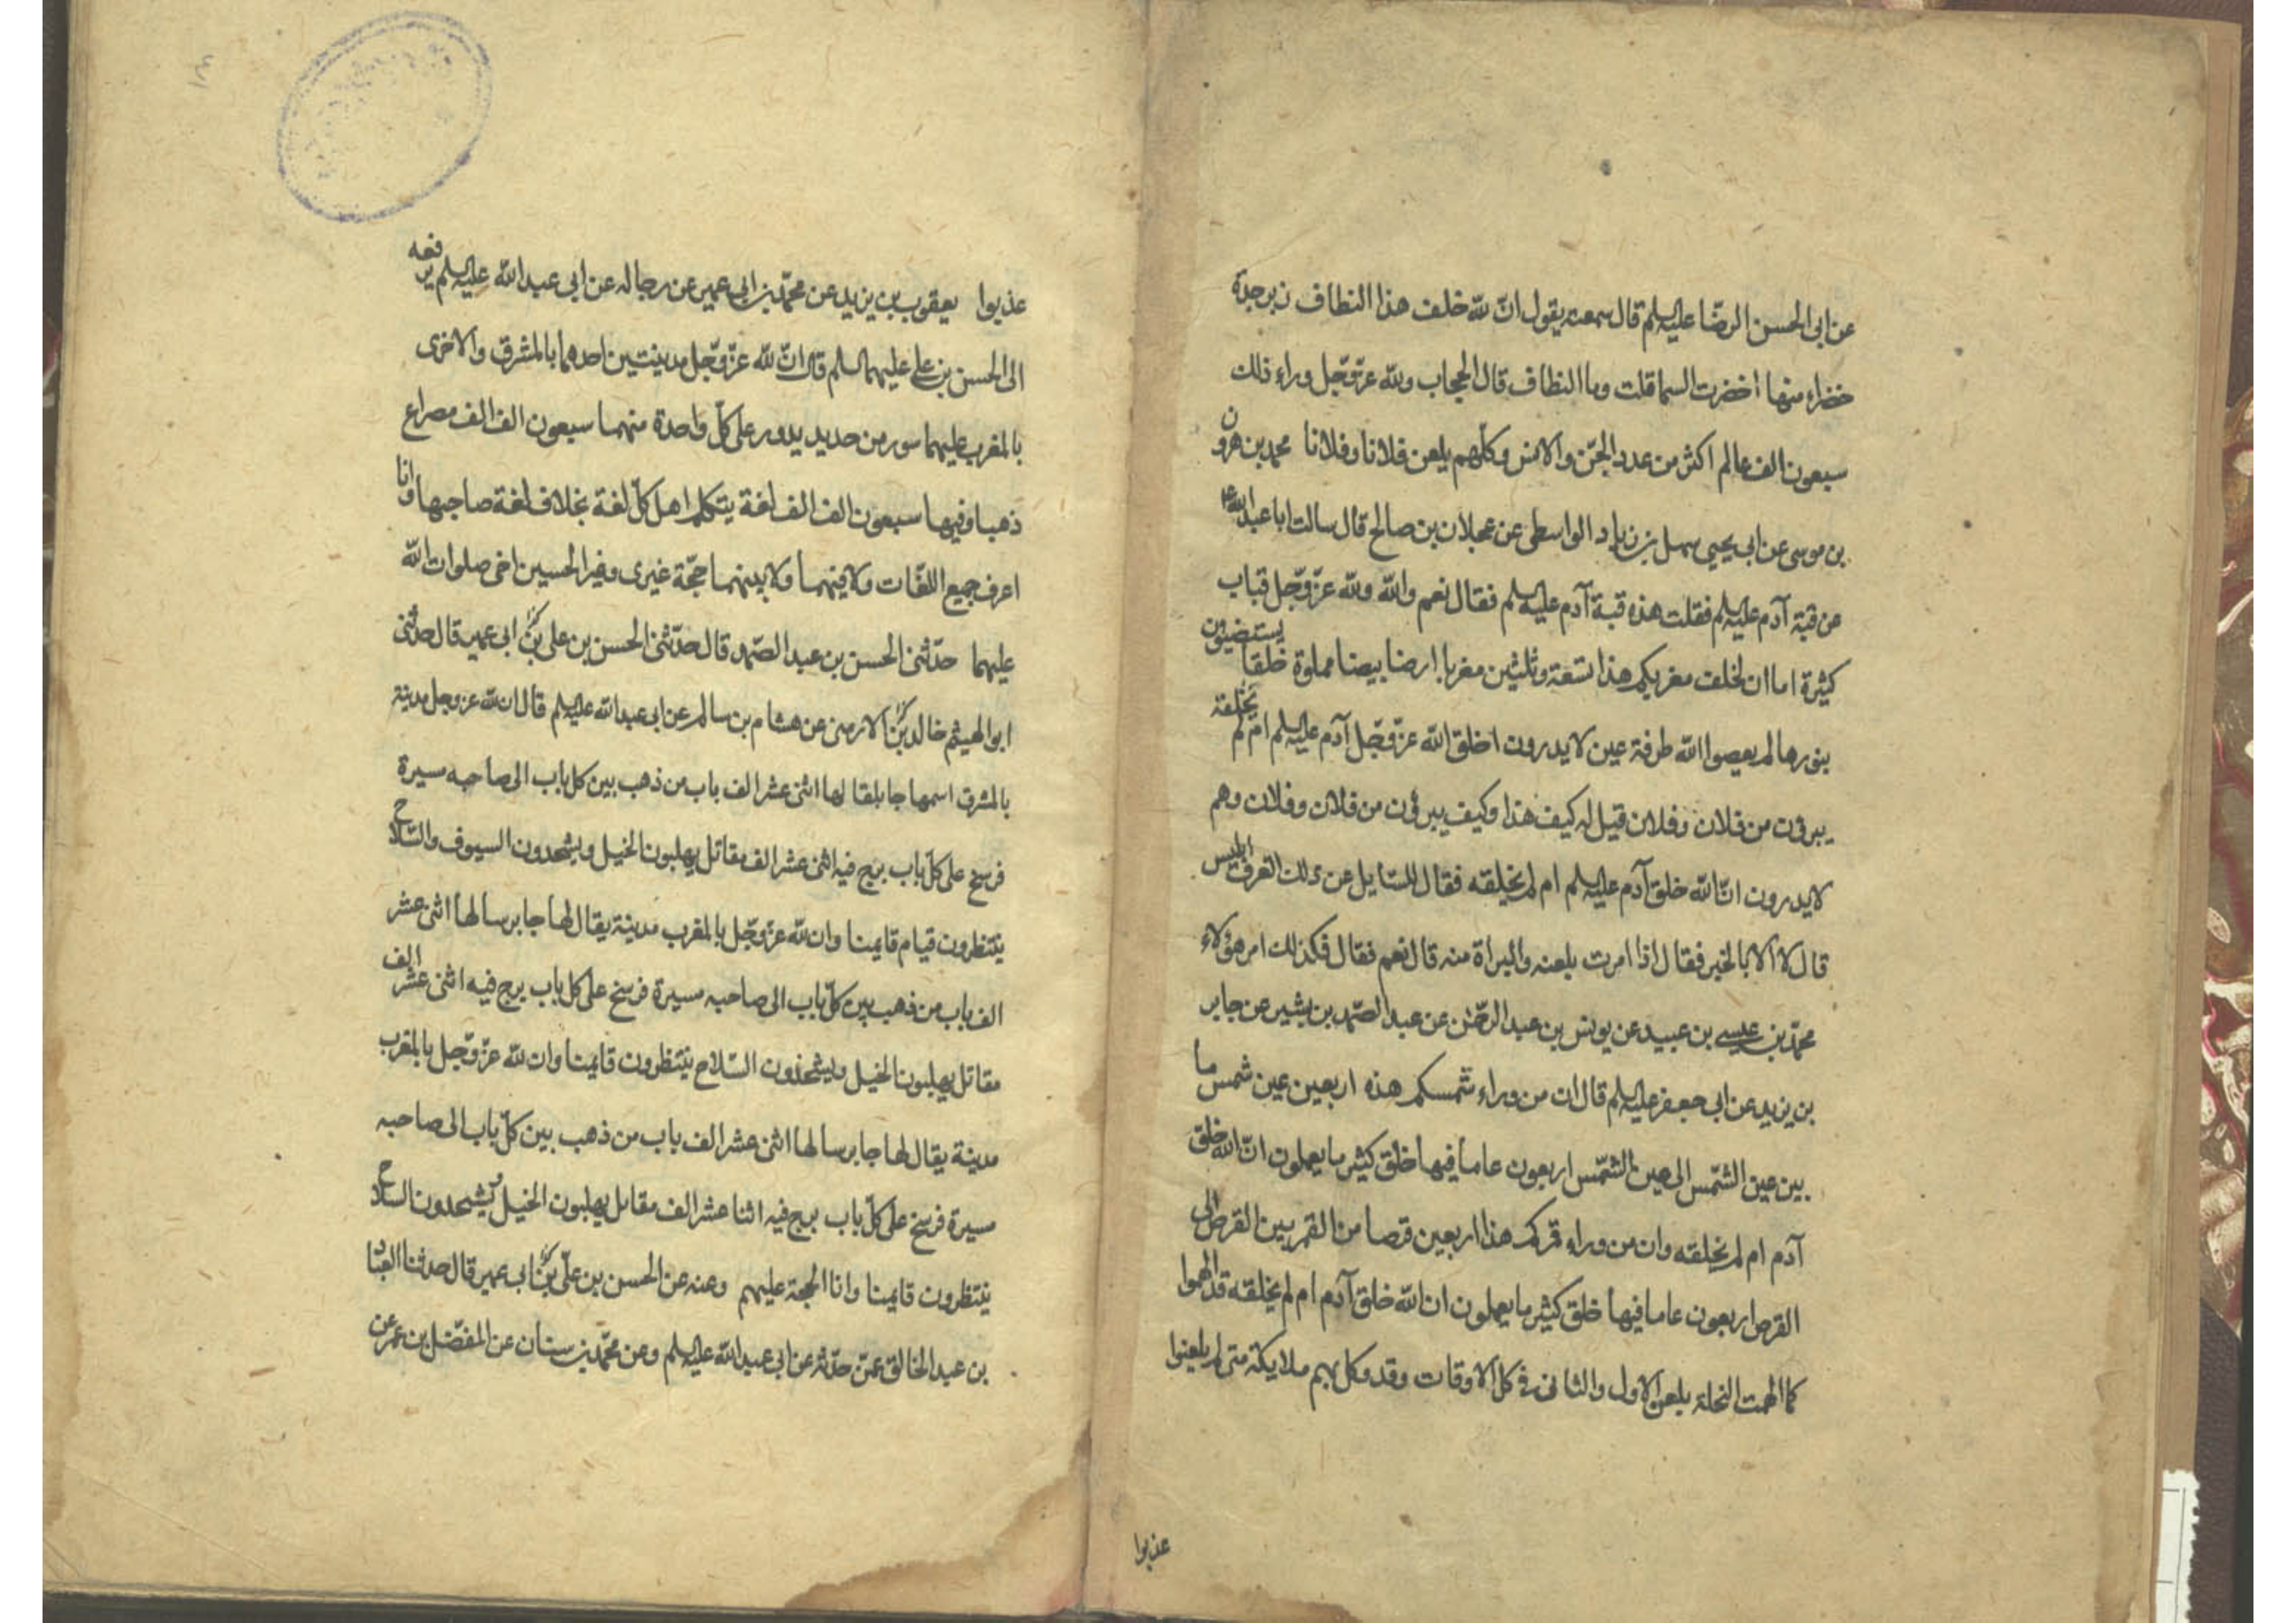 عن ابى الحسن الرضا عليه السلم قال سمعته يقول ان لله خلف هذا النطاف زبرجدة
خضراء منها اخضرت السما قلت وما النطاف قال الحجاب ولله عز وجل وراء ذلك
سبعون الف عالم اكثر من عدد الجن والانس وكلهم يلعن فلانا وفلانا محمد بن هرون
بن موسى عن ابى يحيى سهل بن زياد الواسطى عن عجلان بن صالح قال سالت ابا عبد الله ع
عن قبة آدم عليه السلم فقلت هذه قبة آدم عليه السلم فقال نعم والله ولله عز وجل قباب
كثيرة اما ان لخلف مغربكم هذا تسعة وثلثين مغربا ارضا بيضا مملوة خلقا يستضيؤن
بنورها لم يعصوا الله طرفة عين لا يدرون اخلق الله عز وجل آدم عليه السلم ام لم يخلقه
يبرؤن من فلان وفلان قيل له كيف هذا وكيف يبرؤن من فلان وفلان وهم
لا يدرون ان الله خلق آدم عليه السلم ام لم يخلقه فقال للسايل عن ذلك اتعرف ابليس
قال لا الا بالخبر فقال اذا امرت بلعنه والبراة منه قال نعم فقال فكذلك امر هؤلاء
محمد بن عيسى بن عبيد عن يونس بن عبد الرحمن عن عبد الصمد بن بشير عن جابر
بن يزيد عن ابى جعفر عليه السلم قال ان من وراء شمسكم هذه اربعين عين شمس ما
بين عين الشمس الى عين الشمس اربعون عاما فيها خلق كثير ما يعملون ان الله خلق
آدم ام لم يخلقه وان من وراء قمركم هذا اربعين قرصا من القمر بين القرص الى
القرص اربعون عاما فيها خلق كثير ما يعملون ان الله خلق آدم ام لم يخلقه قد الهموا
كما الهمت النحلة بلعن الاول والثانى فى كل الاوقات وقد وكل بهم ملايكة متى لم يلعنوا
عذبوا
عذبوا يعقوب بن يزيد عن محمد بن ابى عمير عن رجاله عن ابى عبد الله عليه السلم يرفعه
الى الحسن بن على عليهما السلم قال ان لله عز وجل مدينتين احدهما بالمشرق والاخرى
بالمغرب عليهما سور من حديد يدور على كل واحدة منهما سبعون الف الف مصراع
ذهبا وفيها سبعون الف الف لغة يتكلم اهل كل لغة بخلاف لغة صاحبها وانا
اعرف جميع اللغات ولا فيهما ولا بينهما حجة غيرى وغير الحسين اخى صلوات الله
عليهما حدثنى الحسن بن عبد الصمد قال حدثنى الحسن بن على بن ابى عمير قال حدثنى
ابو الهيثم خالد بن الارمنى عن هشام بن سالم عن ابى عبد الله عليه السلم قال ان لله عز وجل مدينة
بالمشرق اسمها جابلقا لها اثنى عشر الف باب من ذهب بين كل باب الى صاحبه مسيرة
فرسخ على كل باب برج فيه اثنى عشر الف مقاتل يهلبون الخيل ويشحدون السيوف والسلاح
ينتظرون قيام قايمنا وان لله عز وجل بالمغرب مدينة يقال لها جابرسا لها اثنى عشر
الف باب من ذهب بين كل باب الى صاحبه مسيرة فرسخ على كل باب برج فيه اثنى عشر الف
مقاتل يهلبون الخيل ويشحذون السلاح ينتظرون قايمنا وان لله عز وجل بالمغرب
مدينة يقال لها جابرسا لها اثنى عشر الف باب من ذهب بين كل باب الى صاحبه
مسيرة فرسخ على كل باب برج فيه اثنا عشر الف مقاتل يهلبون الخيل ويشحدون السلاح
ينتظرون قايمنا وانا الحجة عليهم وعنه عن الحسن بن على بن ابى عمير قال حدثنا العباد
بن عبد الخالق عمن حدثه عن ابى عبد الله عليه السلم وعن محمد بن سنان عن المفضل بن عمر عن